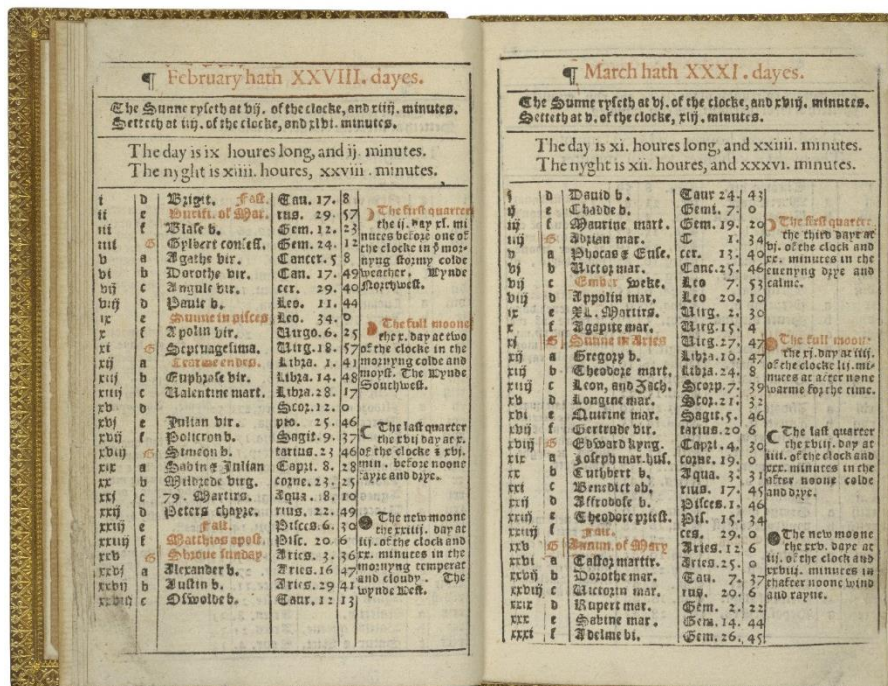 ¶ February hath XXVIII. dayes.
The Sunne ryseth at vij. of the clocke, and xiiij. minutes.
Setteth at iiij. of the clocke, and xlvi. minutes.
The day is ix houres long, and ij. minutes.
The nyght is xiiii. houres, xxviii. minutes.
i d Brigit. Fast. Tau. 17. 8
ii e Purifi. of Mar. rus. 29. 57
iii f Blase b. Gem. 12. 23
iiii G Gylbert confess. Gem. 24. 12
v a Agathe vir. Cancer. 5 8
vi b Dorothe vir. Can. 17. 49
vij c Angule vir. cer. 29. 40
viij d Paule b. Leo. 11. 44
ix e Sunne in pisces Leo. 34. 0
x f Apolin vir. Virgo. 6. 25
xi G Septuagesima. Virg. 18. 57
xij a Libra. 1. 41
xiij b Euphrase vir. Libra. 14. 48
xiiij c Valentine mart. Libra. 28. 17
xv d Scor. 12. 0
xvj e Julian vir. pio. 25. 46
xvij f Policron b. Sagit. 9. 37
xviij G Simeon b. tarius. 23 46
xix a Sabin & Julian Capri. 8. 28
xx b Myldrede virg. corne. 23. 25
xxj c 79. Martirs. Aqua. 8. 10
xxij d Peters chayre. rius. 22. 49
xxiij e Fast. Pisces. 6. 30
xxiiij f Matthias apost. Pisc. 20. 6
xxv G Shroue sunday. Aries. 3. 36
xxvj a Alexander b. Aries. 16 47
xxvij b Austin b. Aries. 29 41
xxviij c Oswolde b. Taur. 12 13
The first quarter
the ij. day xl. mi
nutes before one of
the clocke in þ mor-
nyng stormy colde
weather. Wynde
Northwest.
The full moone
the x. day at two
of the clocke in the
mornyng colde and
moyst. The Wynde
Southwest.
The last quarter
the xvij day at x.
of the clocke & xvj.
min. before noone
fayre and drye.
The new moone
the xxiij. day at
iij. of the clock and
xx. minutes in the
mornyng temperat
and cloudy. The
wynde West.
¶ March hath XXXI. dayes.
The Sunne ryseth at vj. of the clocke, and xviij. minutes.
Setteth at v. of the clocke, xlij. minutes.
The day is xi. houres long, and xxiiii. minutes.
The nyght is xii. houres, and xxxvi. minutes.
j d Dauid b. Taur 24. 43
ij e Chadde b. Gemi. 7. 0
iij f Maurine mart. Gem. 19. 20
iiij G Adrian mar. 1. 34
v a Phocas & Euse. cer. 13. 40
vj b Victor mar. Canc. 25. 46
vij c Ember weke. Leo 7. 53
viij d Appolin mar. Leo 20. 10
ix e XL. Martirs. Virg. 2. 30
x f Agapite mar. Virg. 15. 4
xj G Sunne in Aries Virg. 27. 47
xij a Gregory b. Libra. 10. 47
xiij b Theodore mart. Libra. 24. 8
xiiij c Leon, and Zach. Scorp. 7. 39
xv d Longine mar. Scor. 21. 32
xvi e Quirine mar. Sagit. 5. 46
xvij f Gertrude vir. tarius. 20 6
xviij G Edward kyng. Capri. 4. 30
xix a Joseph mar. hus. corne. 19. 0
xx b Cuthbert b. Aqua. 3. 31
xxi c Benedict ab. rius. 17. 45
xxij d Affrodose b. Pisces. 1. 46
xxiij e Theodore priest. Pis. 15. 34
xxiiij f Fast. ces. 29. 0
xxv G Annun. of Mary Aries. 12 6
xxvi a Castor martir. Aries. 25. 0
xxvij b Dorothe mar. Tau. 7. 37
xxviij c Victorin mar. rus. 20. 6
xxix d Rupert mar. Gem. 2. 22
xxx e Sabine mar. Gem. 14. 44
xxxi f Adelme bi. Gem. 26. 45
The first quarter.
the third daye at
vj. of the clock and
xx. minutes in the
euenyng drye and
calme.
The full moone
the xj. day at iiij.
of the clocke lij. mi-
nutes at after none
warme for the time.
The last quarter
the xviij. day at
iiii. of the clock and
xxx. minutes in the
after noone colde
and drye.
The new moone
the xxv. daye at
iij. of the clock and
xxviij. minutes in
thafter noone wind
and rayne.